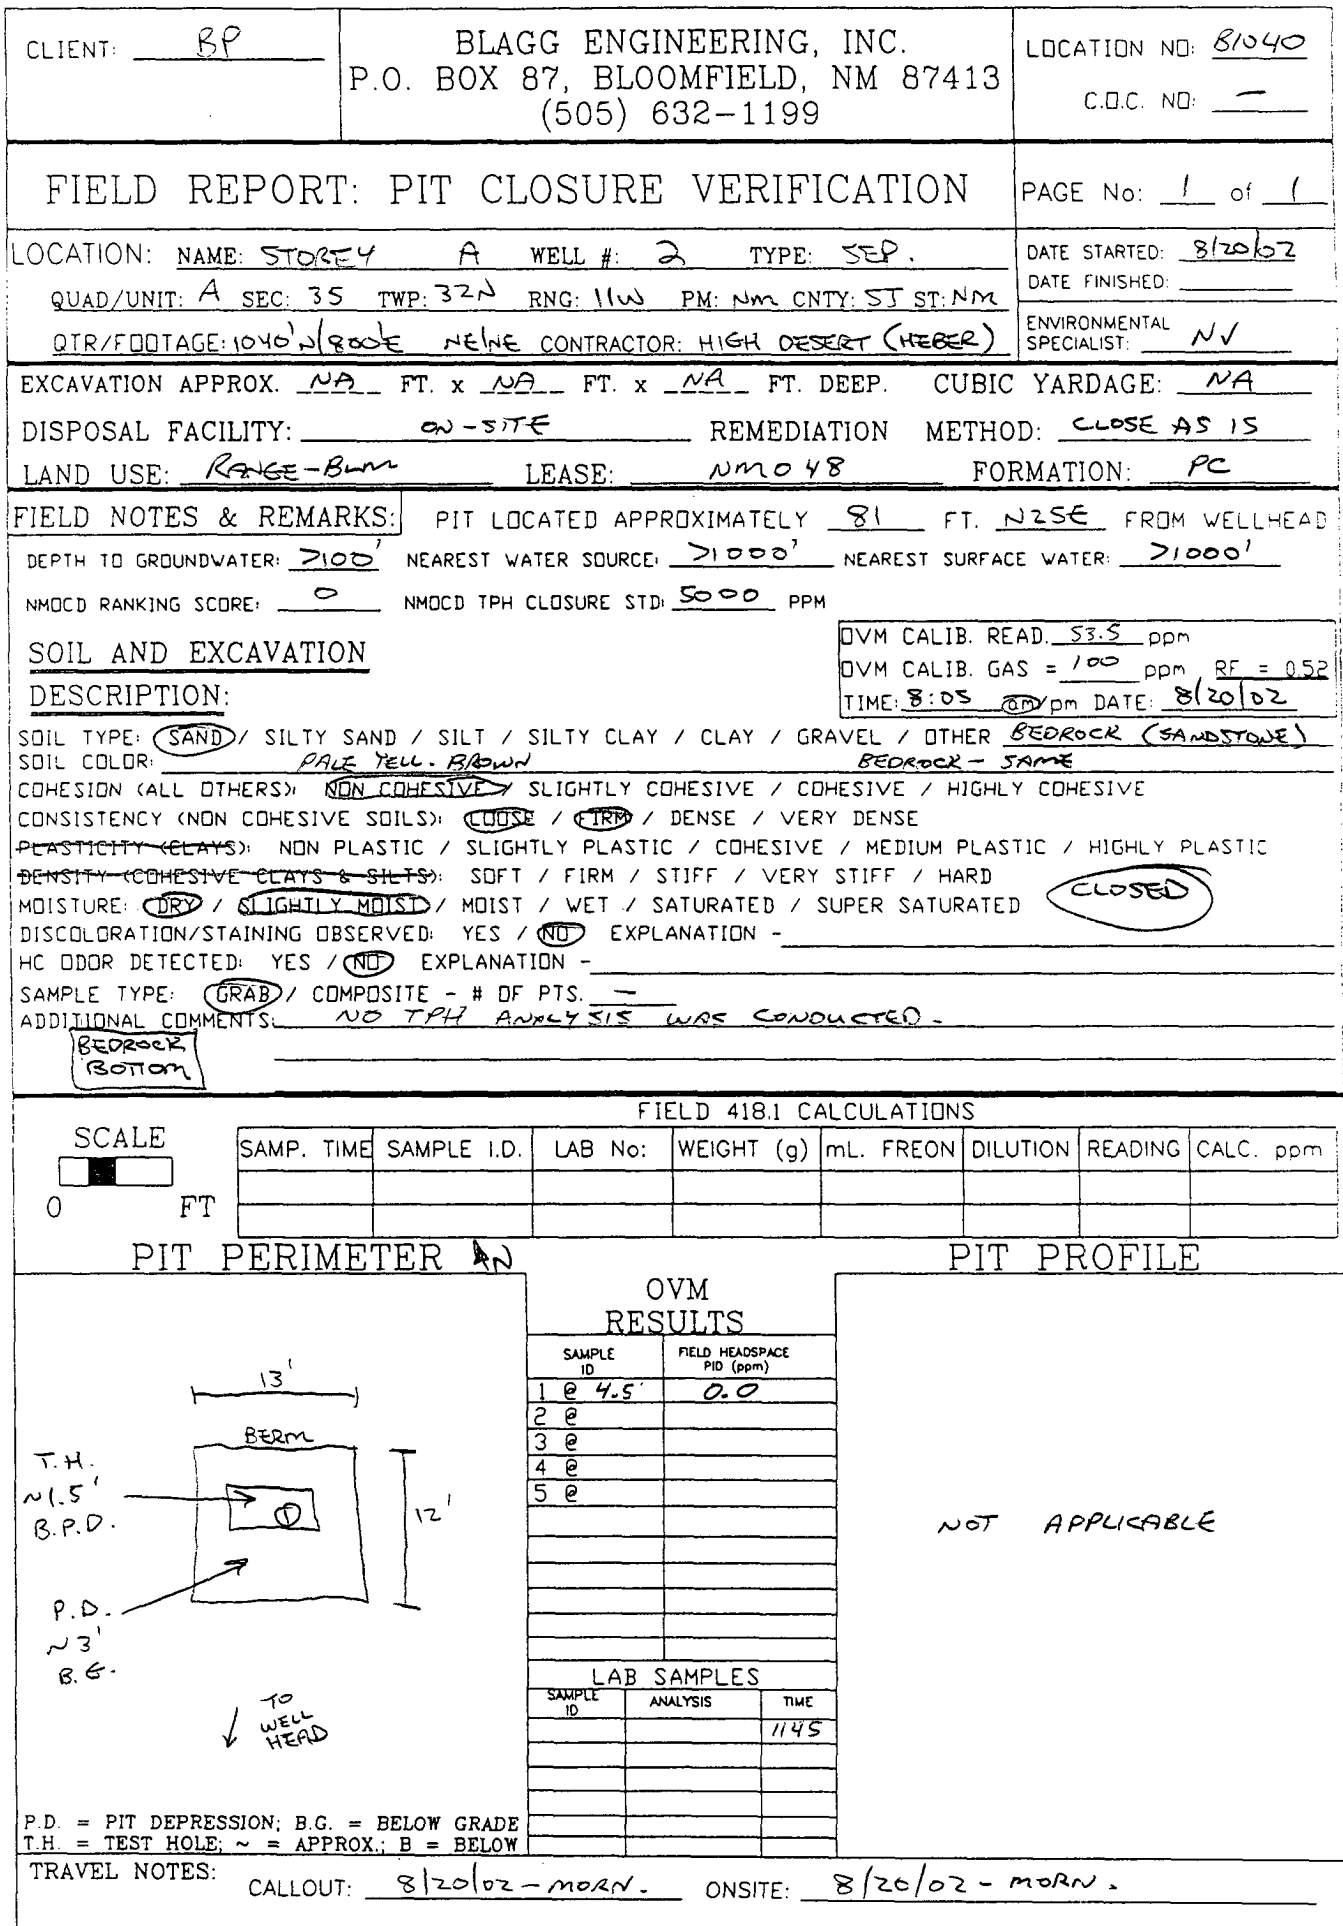 CLIENT: BP
BLAGG ENGINEERING, INC.
P.O. BOX 87, BLOOMFIELD, NM 87413
(505) 632-1199
LOCATION NO: B1040
C.O.C. NO: —
FIELD REPORT: PIT CLOSURE VERIFICATION
PAGE No: 1 of 1
LOCATION: NAME: STOREY A WELL #: 2 TYPE: SEP.
QUAD/UNIT: A SEC: 35 TWP: 32N RNG: 11W PM: NM CNTY: SJ ST: NM
QTR/FOOTAGE: 1040'N/800'E NE/NE CONTRACTOR: HIGH DESERT (HEBER)
DATE STARTED: 8/20/02
DATE FINISHED:
ENVIRONMENTAL
SPECIALIST: NV
EXCAVATION APPROX. NA FT. x NA FT. x NA FT. DEEP. CUBIC YARDAGE: NA
DISPOSAL FACILITY: ON-SITE REMEDIATION METHOD: CLOSE AS IS
LAND USE: RANGE-BLM LEASE: NM048 FORMATION: PC
FIELD NOTES & REMARKS: PIT LOCATED APPROXIMATELY 81 FT. N25E FROM WELLHEAD
DEPTH TO GROUNDWATER: >100' NEAREST WATER SOURCE: >1000' NEAREST SURFACE WATER: >1000'
NMOCD RANKING SCORE: 0 NMOCD TPH CLOSURE STD: 5000 PPM
SOIL AND EXCAVATION
DESCRIPTION:
OVM CALIB. READ. 53.5 ppm
OVM CALIB. GAS = 100 ppm RF = 0.52
TIME: 8:05 am/pm DATE: 8/20/02
SOIL TYPE: SAND / SILTY SAND / SILT / SILTY CLAY / CLAY / GRAVEL / OTHER BEDROCK (SANDSTONE)
SOIL COLOR: PALE YELL. BROWN BEDROCK - SAME
COHESION (ALL OTHERS): NON COHESIVE / SLIGHTLY COHESIVE / COHESIVE / HIGHLY COHESIVE
CONSISTENCY (NON COHESIVE SOILS): LOOSE / FIRM / DENSE / VERY DENSE
PLASTICITY (CLAYS): NON PLASTIC / SLIGHTLY PLASTIC / COHESIVE / MEDIUM PLASTIC / HIGHLY PLASTIC
DENSITY (COHESIVE CLAYS & SILTS): SOFT / FIRM / STIFF / VERY STIFF / HARD
MOISTURE: DRY / SLIGHTLY MOIST / MOIST / WET / SATURATED / SUPER SATURATED
CLOSED
DISCOLORATION/STAINING OBSERVED: YES / NO EXPLANATION -
HC ODOR DETECTED: YES / NO EXPLANATION -
SAMPLE TYPE: GRAB / COMPOSITE - # OF PTS. —
ADDITIONAL COMMENTS: NO TPH ANALYSIS WAS CONDUCTED -
BEDROCK
BOTTOM
FIELD 418.1 CALCULATIONS
SCALE
0 FT
SAMP. TIME SAMPLE I.D. LAB No: WEIGHT (g) mL. FREON DILUTION READING CALC. ppm
PIT PERIMETER N
PIT PROFILE
OVM
RESULTS
SAMPLE ID FIELD HEADSPACE PID (ppm)
1 @ 4.5' 0.0
2 @
3 @
4 @
5 @
13'
BERM
T.H.
~1.5'
B.P.D.
1
12'
P.D.
~3'
B.G.
TO
WELL
HEAD
NOT APPLICABLE
LAB SAMPLES
SAMPLE ID ANALYSIS TIME
1145
P.D. = PIT DEPRESSION; B.G. = BELOW GRADE
T.H. = TEST HOLE; ~ = APPROX.; B = BELOW
TRAVEL NOTES: CALLOUT: 8/20/02 - MORN. ONSITE: 8/20/02 - MORN.